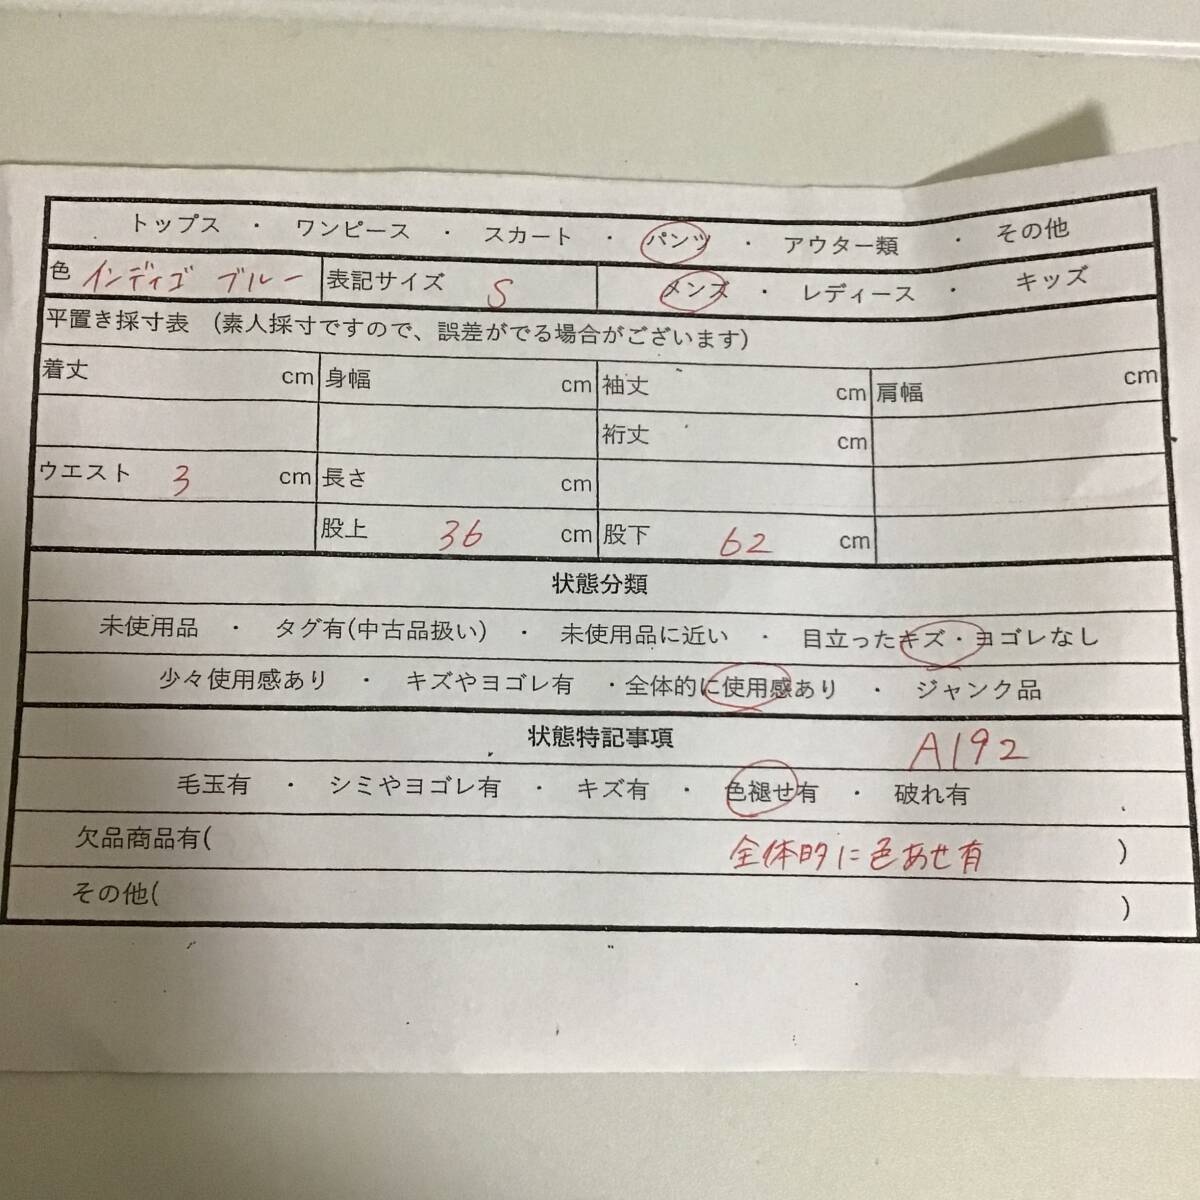 トップス ・ ワンピース ・ スカート ・ パンツ ・ アウター類 ・ その他
色 インディゴ ブルー 表記サイズ S メンズ ・ レディース ・ キッズ
平置き採寸表 (素人採寸ですので、誤差がでる場合がございます)
着丈 cm 身幅 cm 袖丈 cm 肩幅 cm
裄丈 cm
ウエスト 3 cm 長さ cm
股上 36 cm 股下 62 cm
状態分類
未使用品 ・ タグ有(中古品扱い) ・ 未使用品に近い ・ 目立ったキズ・ヨゴレなし
少々使用感あり ・ キズやヨゴレ有 ・全体的に使用感あり ・ ジャンク品
状態特記事項 A192
毛玉有 ・ シミやヨゴレ有 ・ キズ有 ・ 色褪せ有 ・ 破れ有
欠品商品有( 全体的に色あせ有 )
その他( )